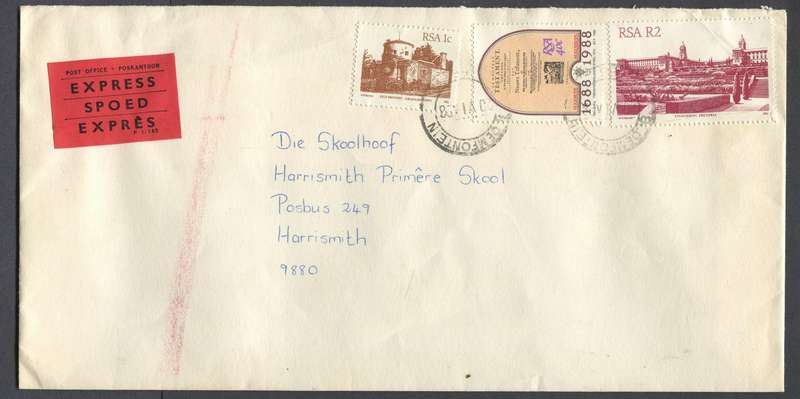 POST OFFICE • POSKANTOOR
EXPRESS
SPOED
EXPRÈS
P 1/185
RSA 1c
TESTAMENT,
1688 1988
RSA R2
BLOEMFONTEIN
Die Skoolhoof
Harrismith Primêre Skool
Posbus 249
Harrismith
9880